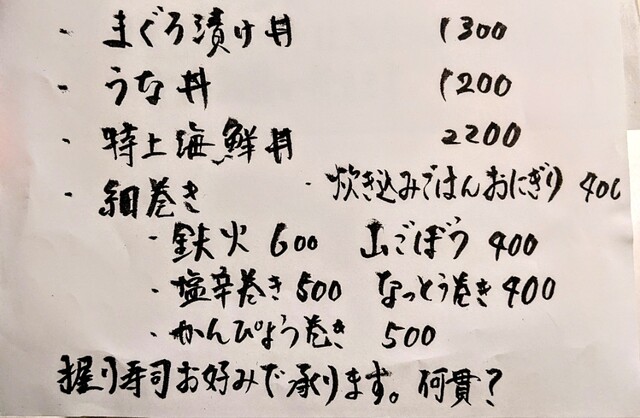 ・まぐろ漬け丼 1300
・うな丼 1200
・特上海鮮丼 2200
・細巻き ・炊き込みごはんおにぎり 400
・鉄火 600 山ごぼう 400
・塩辛巻き 500 なっとう巻き 400
・かんぴょう巻き 500
握り寿司お好みで承ります。何貫?